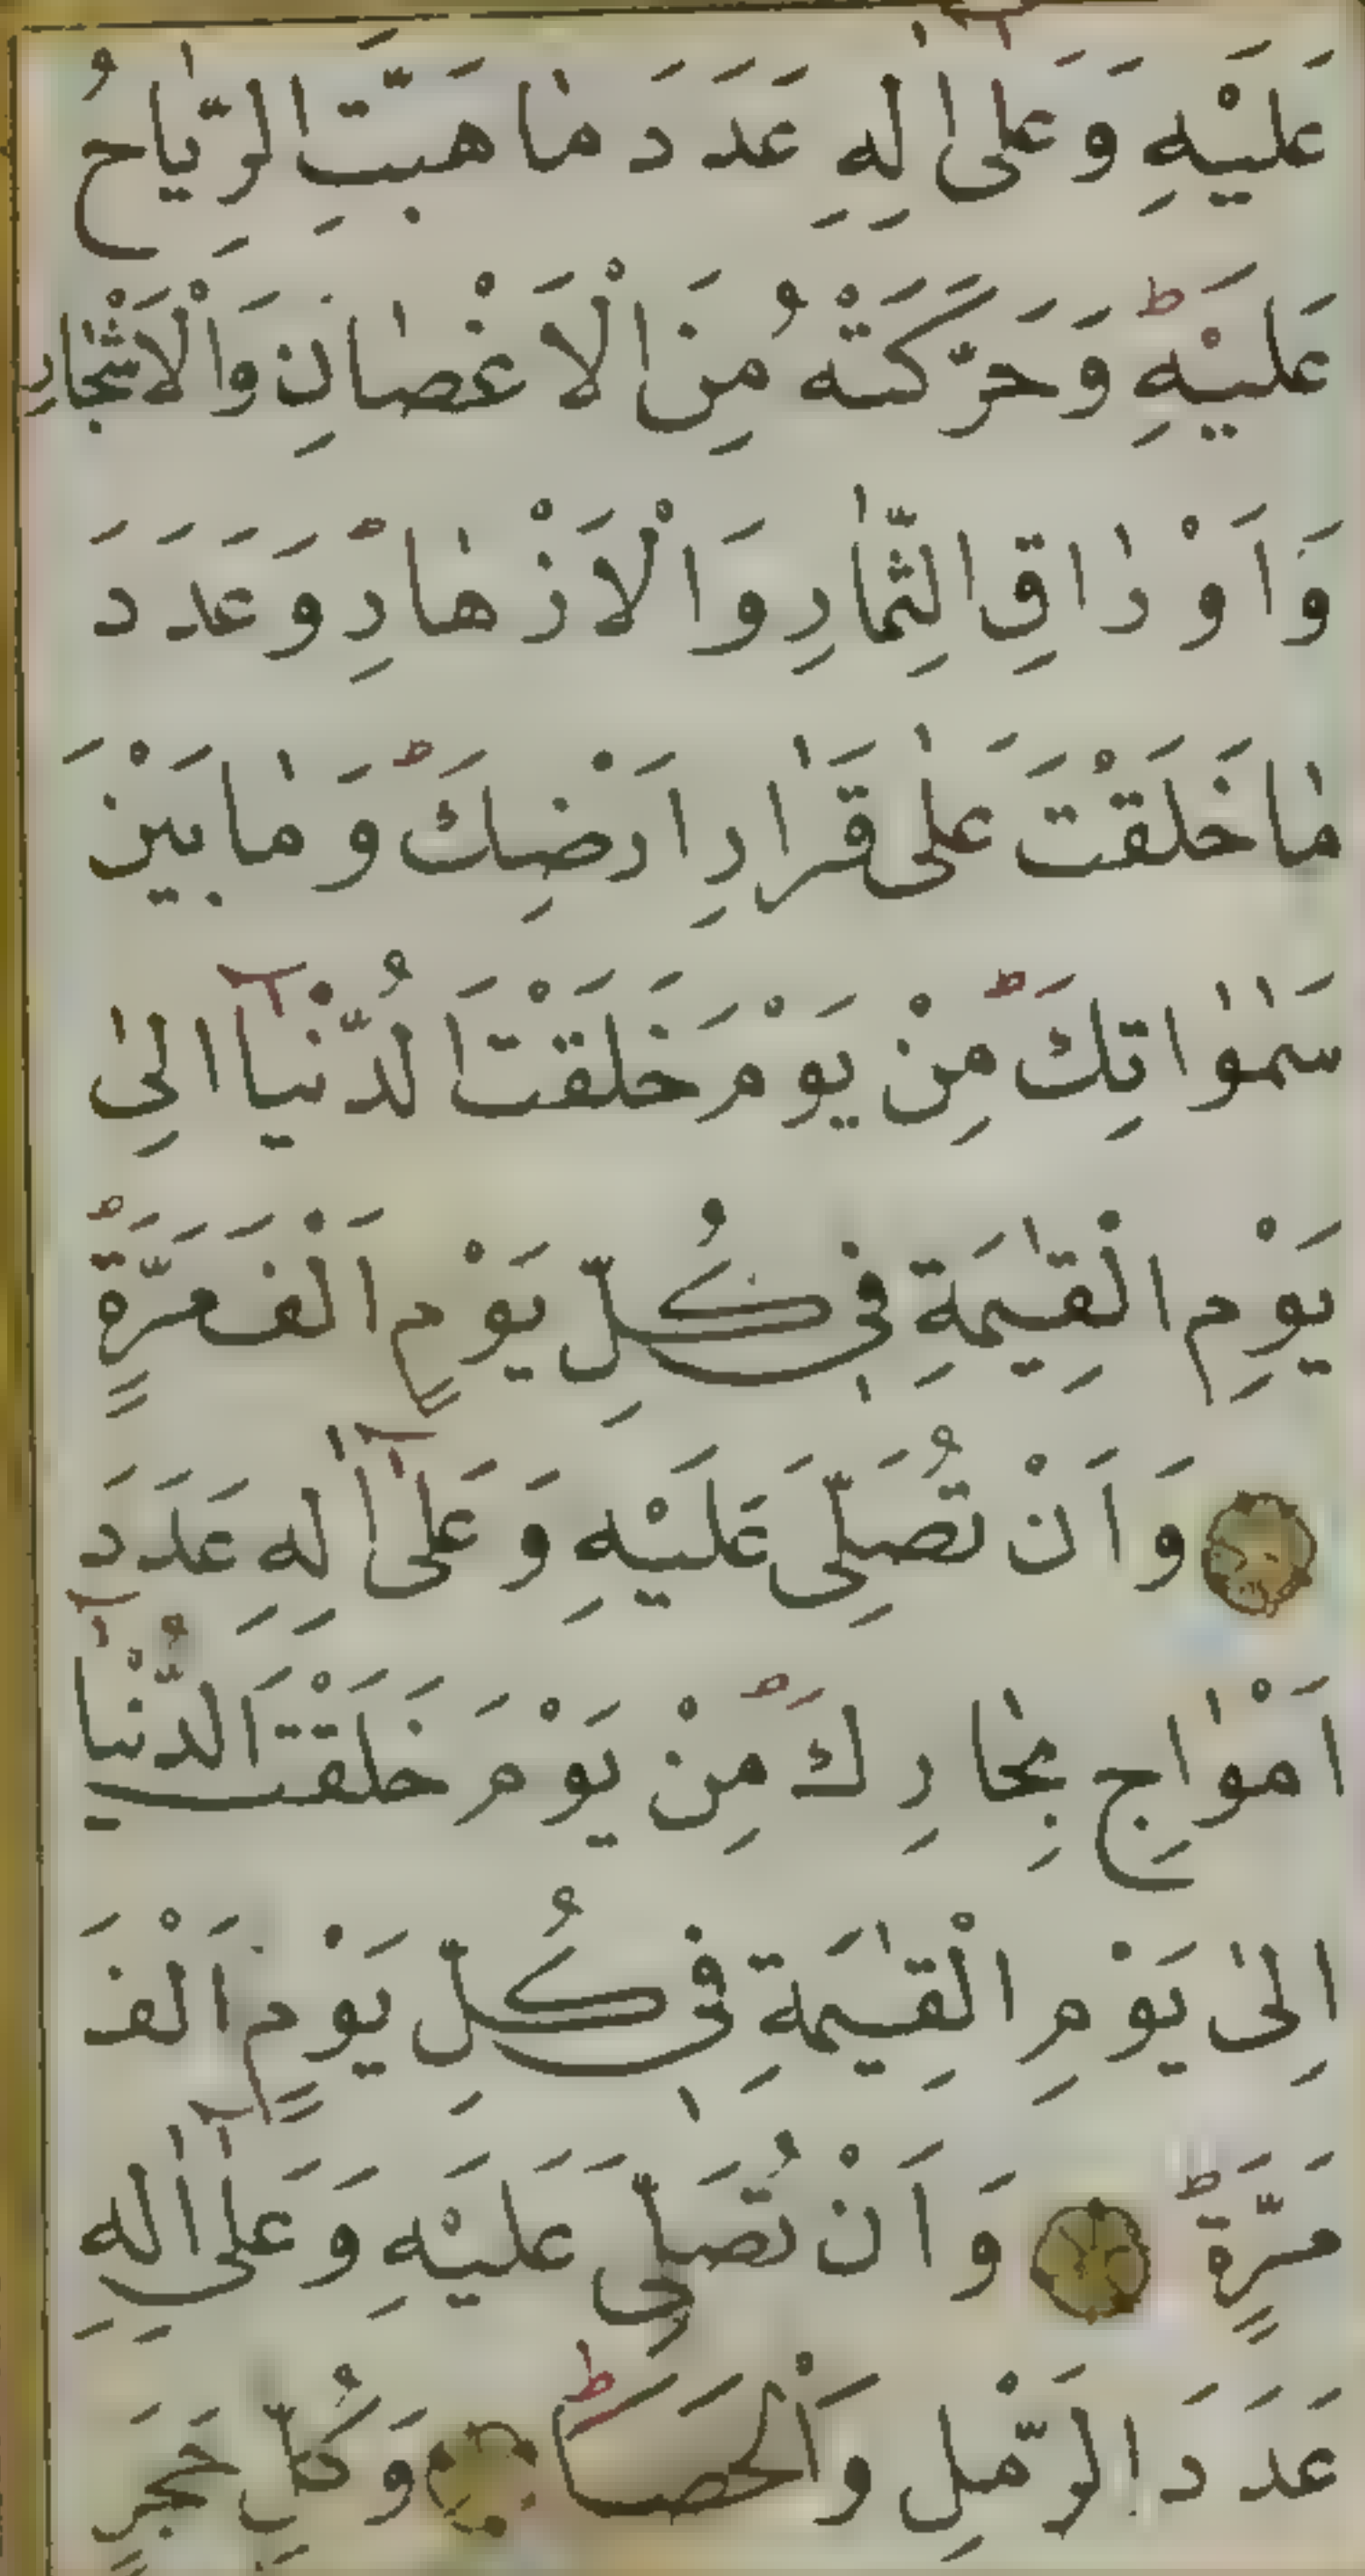 عَلَيْهِ وَعَلٰى اٰلِهِ عَدَدَ مٰا هَبَّتِ الرِّيٰاحُ
عَلَيْهِ ط وَحَرَّكَتْهُ مِنَ الْاَغْصٰانِ وَالْاَشْجٰارِ
وَاَوْرٰاقِ الثِّمٰارِ وَالْاَزْهٰارِ ط وَعَدَدَ
مٰا خَلَقْتَ عَلٰى قَرٰارِ اَرْضِكَ ط وَمٰا بَيْنَ
سَمٰوٰاتِكَ ط مِنْ يَوْمَ خَلَقْتَ الدُّنْيَآ اِلٰى
يَوْمِ الْقِيٰمَةِ فِى كُلِّ يَوْمٍ اَلْفَ مَرَّةٍ ط
وَاَنْ تُصَلِّىَ عَلَيْهِ وَعَلٰٓى اٰلِهِ عَدَدَ
اَمْوٰاجِ بِحٰارِكَ ط مِنْ يَوْمَ خَلَقْتَ الدُّنْيَآ
اِلٰى يَوْمِ الْقِيٰمَةِ فِى كُلِّ يَوْمٍ اَلْفَ
مَرَّةٍ ط وَاَنْ تُصَلِّىَ عَلَيْهِ وَعَلٰٓى اٰلِهِ
عَدَدَ الرَّمْلِ وَالْحَصَا ط وَكُلِّ حَجَرٍ